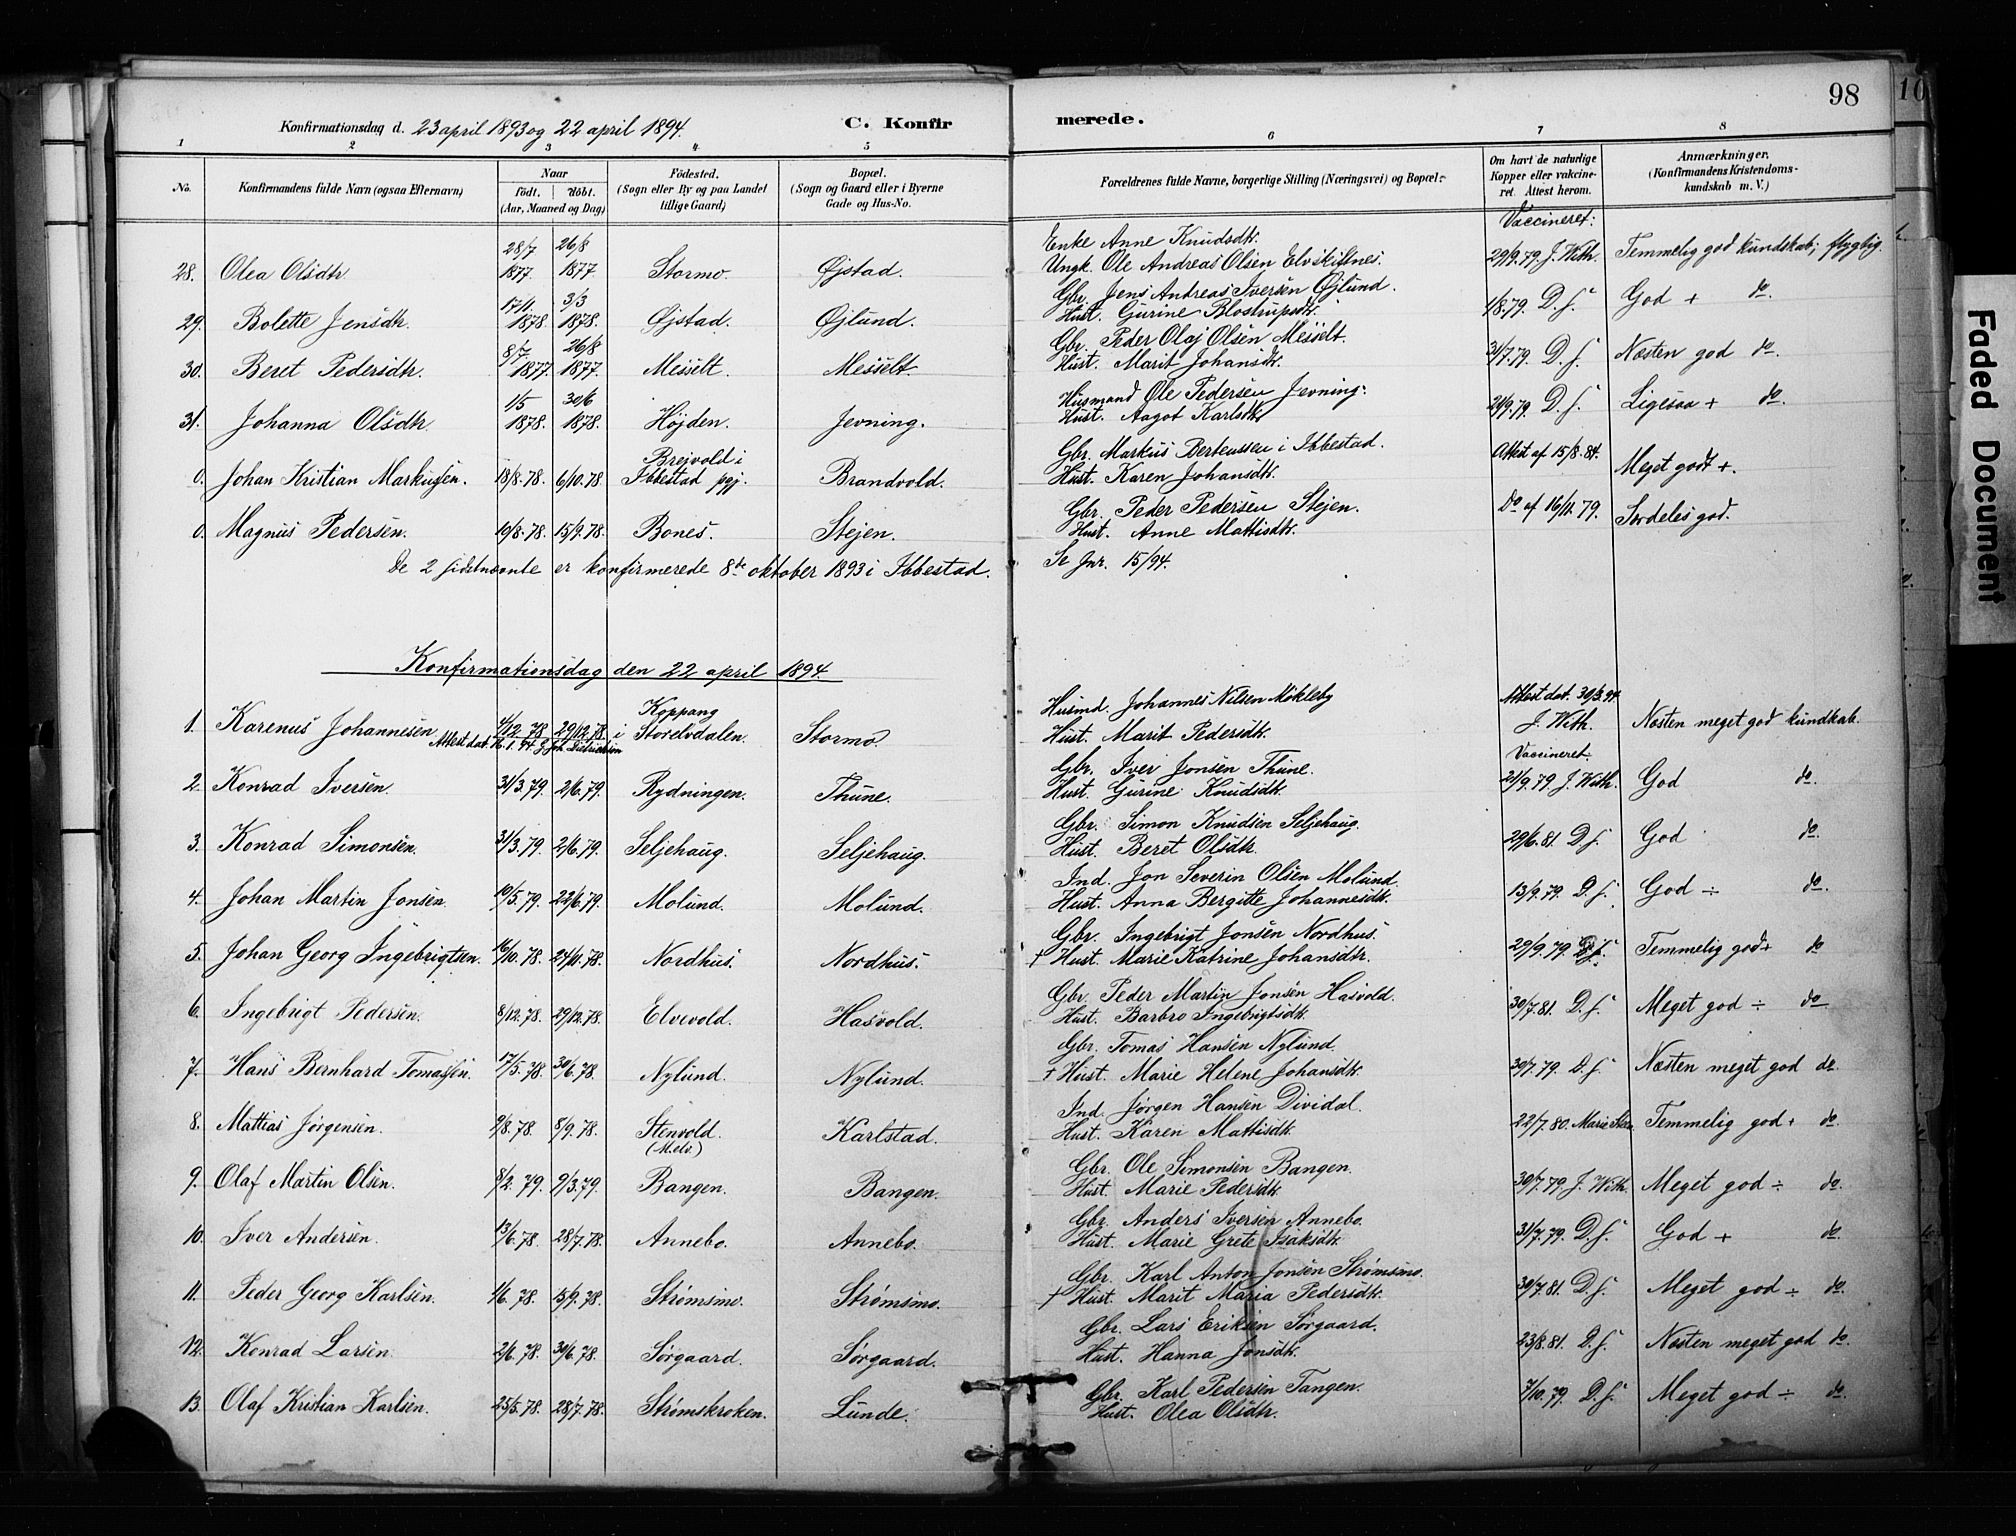 98
Konfirmationsdag d. 23 april 1893 og 22 april 1894. C. Konfirmerede.
1 2 3 4 5 6 7 8
No. Konfirmandens fulde Navn (ogsaa Efternavn) Naar født. døbt. (Aar, Maaned og Dag) Fødested. (Sogn eller By og paa Landet tillige Gaard) Bopæl. (Sogn og Gaard eller i Byerne Gade og Hus-No. Forældrenes fulde Navne, borgerlige Stilling (Næringsvei) og Bopæl. Om havt de naturlige Kopper eller vakcineret. Attest herom. Anmærkninger. (Konfirmandens Kristendomskundskab m. V.)
Vaccineret:
28. Olea Olsdtr. 28/7 1877. 26/8 1877. Stormo. Øjstad. Enke Anne Knudsdtr. 29/9.79. J. With. Temmelig god kundskab; flygtig.
Ungk. Ole Andreas Olsen Elvskiftnes.
29. Bolette Jensdtr. 17/1 1878. 3/3 1878. Øjstad. Øjlund. Gbr. Jens Andreas Iversen Øjlund. 1/8.79. D. s. God + do.
Hust. Gurine Blostrupsdtr.
30. Beret Pedersdtr. 8/7 1877. 26/8 1877. Messelt. Messelt. Gbr. Peder Olaj Olsen Messelt. 31/7.79. D. s. Næsten god do.
Hust. Marit Johansdtr.
31. Johanna Olsdtr. 1/5 1878. 30/6 1878. Højden. Jevning. Husmand Ole Pedersen Jevning. 21/9.79. D. s. Ligesaa + do.
Hust. Aagot Karlsdtr.
0. Johan Kristian Markussen. 18/8.78. 6/10.78. Brejvold i Ibbestad pgj. Brandvold. Gbr. Markus Berteussen i Ibbestad. Attest af 15/8.84. Meget godt +.
Hust. Karen Johansdtr.
0. Magnus Pedersen. 19/8.78. 15/9.78. Bones. Stejen. Gbr. Peder Pedersen Stejen. Do af 16/11.79. Særdeles god.
Hust. Anne Mattisdtr.
De 2 sidstnævnte er konfirmerede 8de oktober 1893 i Ibbestad. Se Jnr. 15/94.
Konfirmationsdag den 22 april 1894.
1. Karenus Johannesen 4/12.78 29/12.78. i Koppang Storelvdalen. Stormo. Husmd. Johannes Nilsen Møkleby Attest dat. 30/3.94. J. With. Næsten meget god kundskab.
Hust. Marit Pedersdtr.
Vaccineret.
2. Konrad Iversen. 31/3.79. 2/6.79. Rydningen. Thune. Gbr. Iver Jonsen Thune. 21/9.79 J. With. God do.
Hust. Gurine Knudsdtr.
3. Konrad Simonsen. 31/3.79. 2/6.79. Seljehaug. Seljehaug. Gbr. Simon Knudsen Seljehaug. 29/6.81. D. s. God do.
Hust. Beret Olsdtr.
4. Johan Martin Jonsen. 19/5.79. 22/6.79. Molund. Molund. Ind. Jon Severin Olsen Molund. 13/9.79. D. s. God ÷ do.
Hust. Anna Bergitte Johannesdtr.
5. Johan Georg Ingebrigtsen. 16/10.78. 24/11.78. Nordhus. Nordhus. Gbr. Ingebrigt Jonsen Nordhus. 29/9.79. D. s. Temmelig god + do
† Hust. Marie Katrine Johansdtr.
6. Ingebrigt Pedersen. 8/12.78. 29/12.78. Elvevold. Hasvold. Gbr. Peder Martin Jonsen Hasvold. 30/7.81. D. s. Meget god ÷ do
Hust. Barbro Ingebrigtsdtr.
7. Hans Bernhard Tomassen. 17/5.78. 30/6.78. Nylund. Nylund. Gbr. Tomas Hansen Nylund. 30/7.79. D. s. Næsten meget god do.
† Hust. Marie Helene Johansdtr.
8. Mattias Jørgensen. 9/8.78. 8/9.78. Stenvold. (M.elv.) Karlstad. Ind. Jørgen Hansen Dividal. 22/7.80. Marie Temmelig god + do.
Hust. Karen Mattisdtr.
9. Olaf Martin Olsen. 8/2.79. 9/3.79. Bangen. Bangen. Gbr. Ole Simonsen Bangen. 30/7.79. J. With. Meget god ÷ do.
Hust. Marie Pedersdtr.
10. Iver Andersen. 13/6.78. 28/7.78. Annebo. Annebo. Gbr. Anders Iversen Annebo. 31/7.79. D. s. God + do.
Hust. Marie Grete Isaksdtr.
11. Peder Georg Karlsen. 4/6.78. 15/9.78. Strømsmo. Strømsmo. Gbr. Karl Anton Jonsen Strømsmo. 30/7.81. D. s. Meget god ÷ do.
† Hust. Marit Maria Pedersdtr.
12. Konrad Larsen. 2/6.78. 30/6.78. Sørgaard. Sørgaard. Gbr. Lars Eriksen Sørgaard. 23/8.81. D. s. Næsten meget god do.
Hust. Hanna Jonsdtr.
13. Olaf Kristian Karlsen. 25/5.78. 28/7.78. Strømskroken. Lunde. Gbr. Karl Pedersen Tangen. 7/10.79. D. s. Meget god ÷ do.
Hust. Olea Olsdtr.
Faded Document